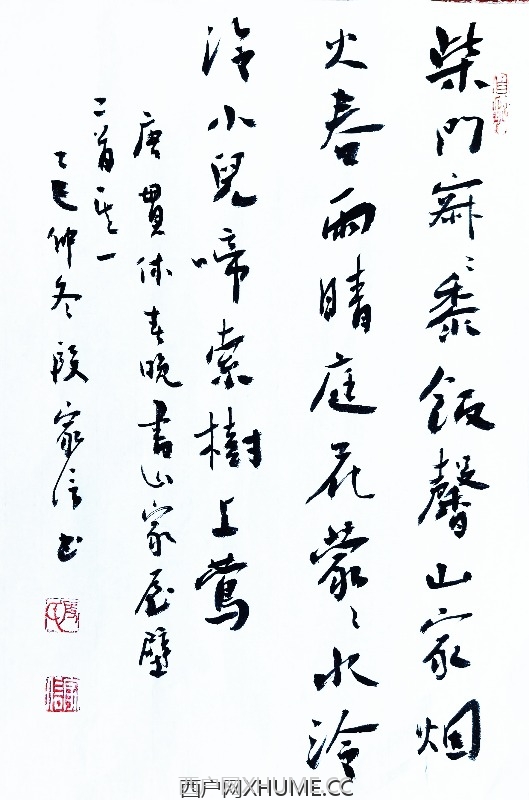 柴門寂〻黍飯馨山家烟
火春雨晴庭花蒙〻水泠
泠小兒啼索樹上鶯
唐貫休春晚書山家屋壁
二首其一
乙巳仲冬段家信书
西户网XHUME.CC